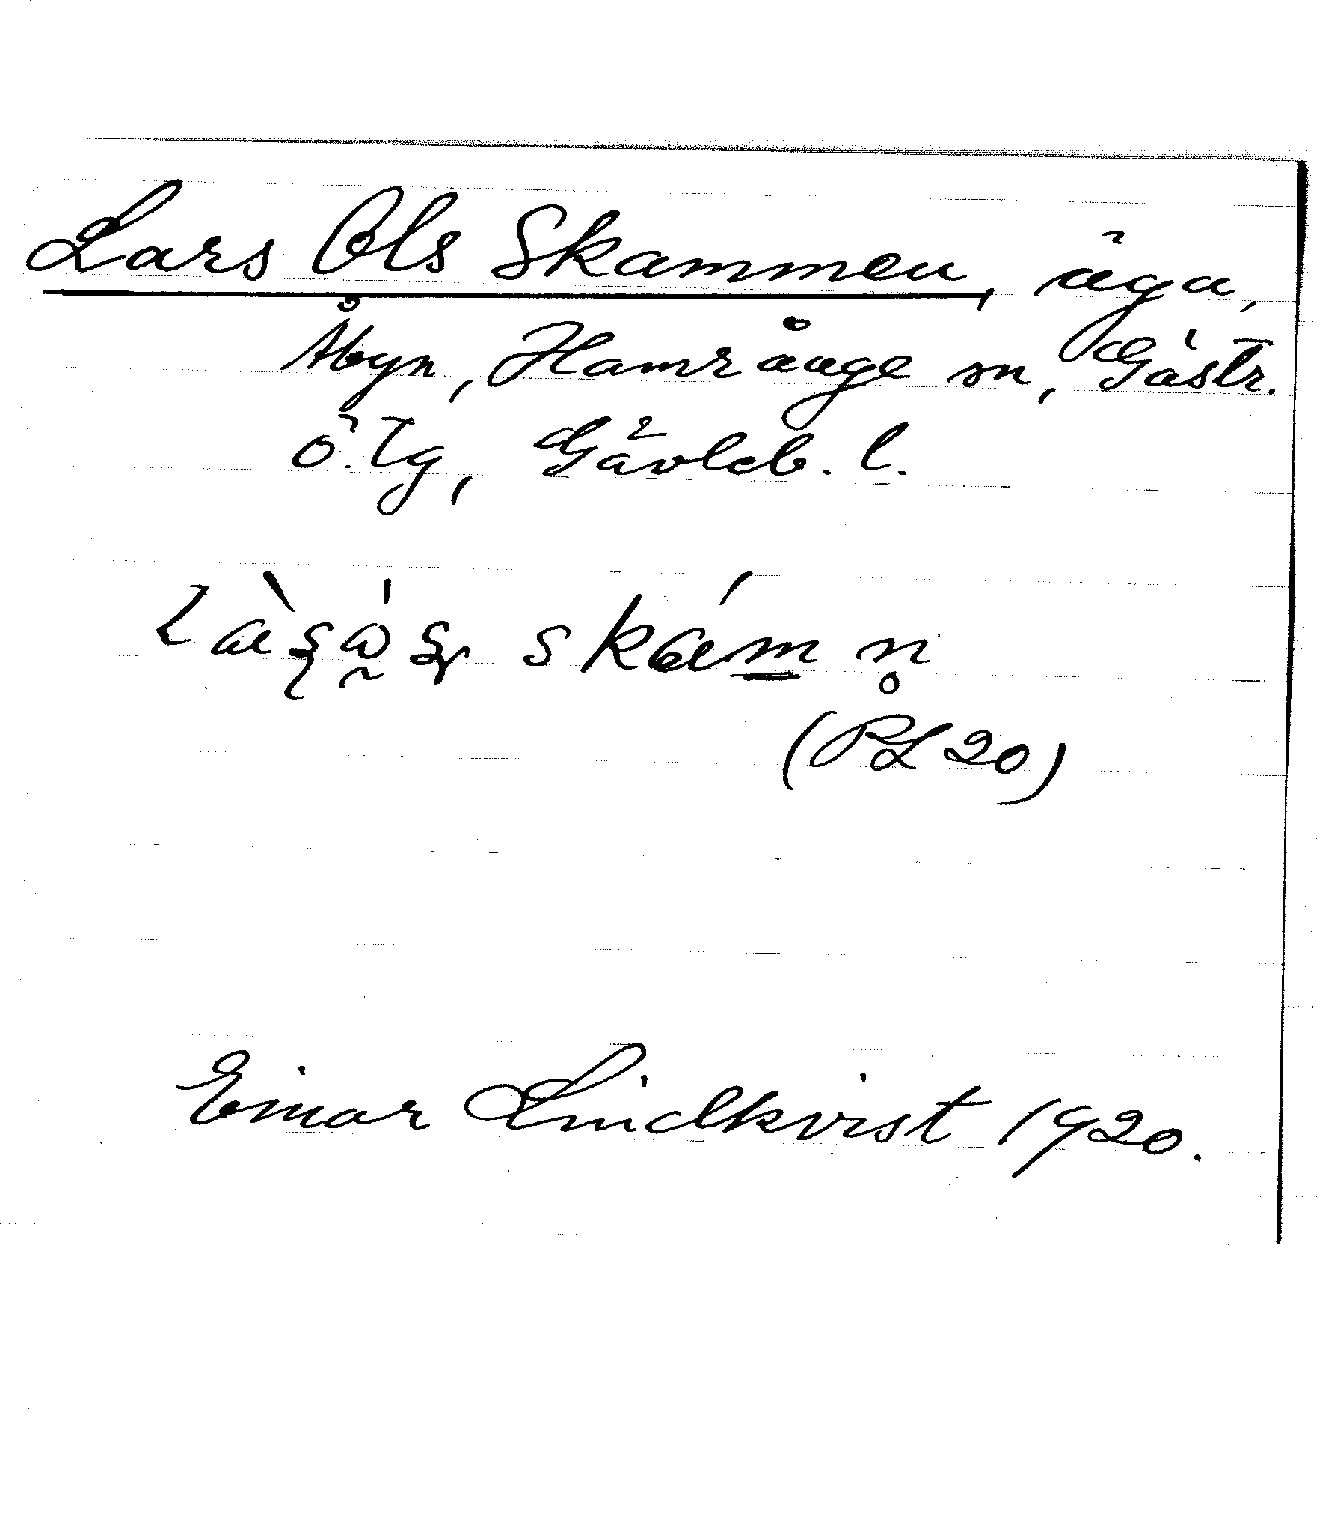 Lars Ols Skammen, äga,
Åbyn, Hamrånge sn, Gästr.
ö. tg, Gävleb. l.
skámn̥
(PL 20)
Einar Lindkvist 1920.